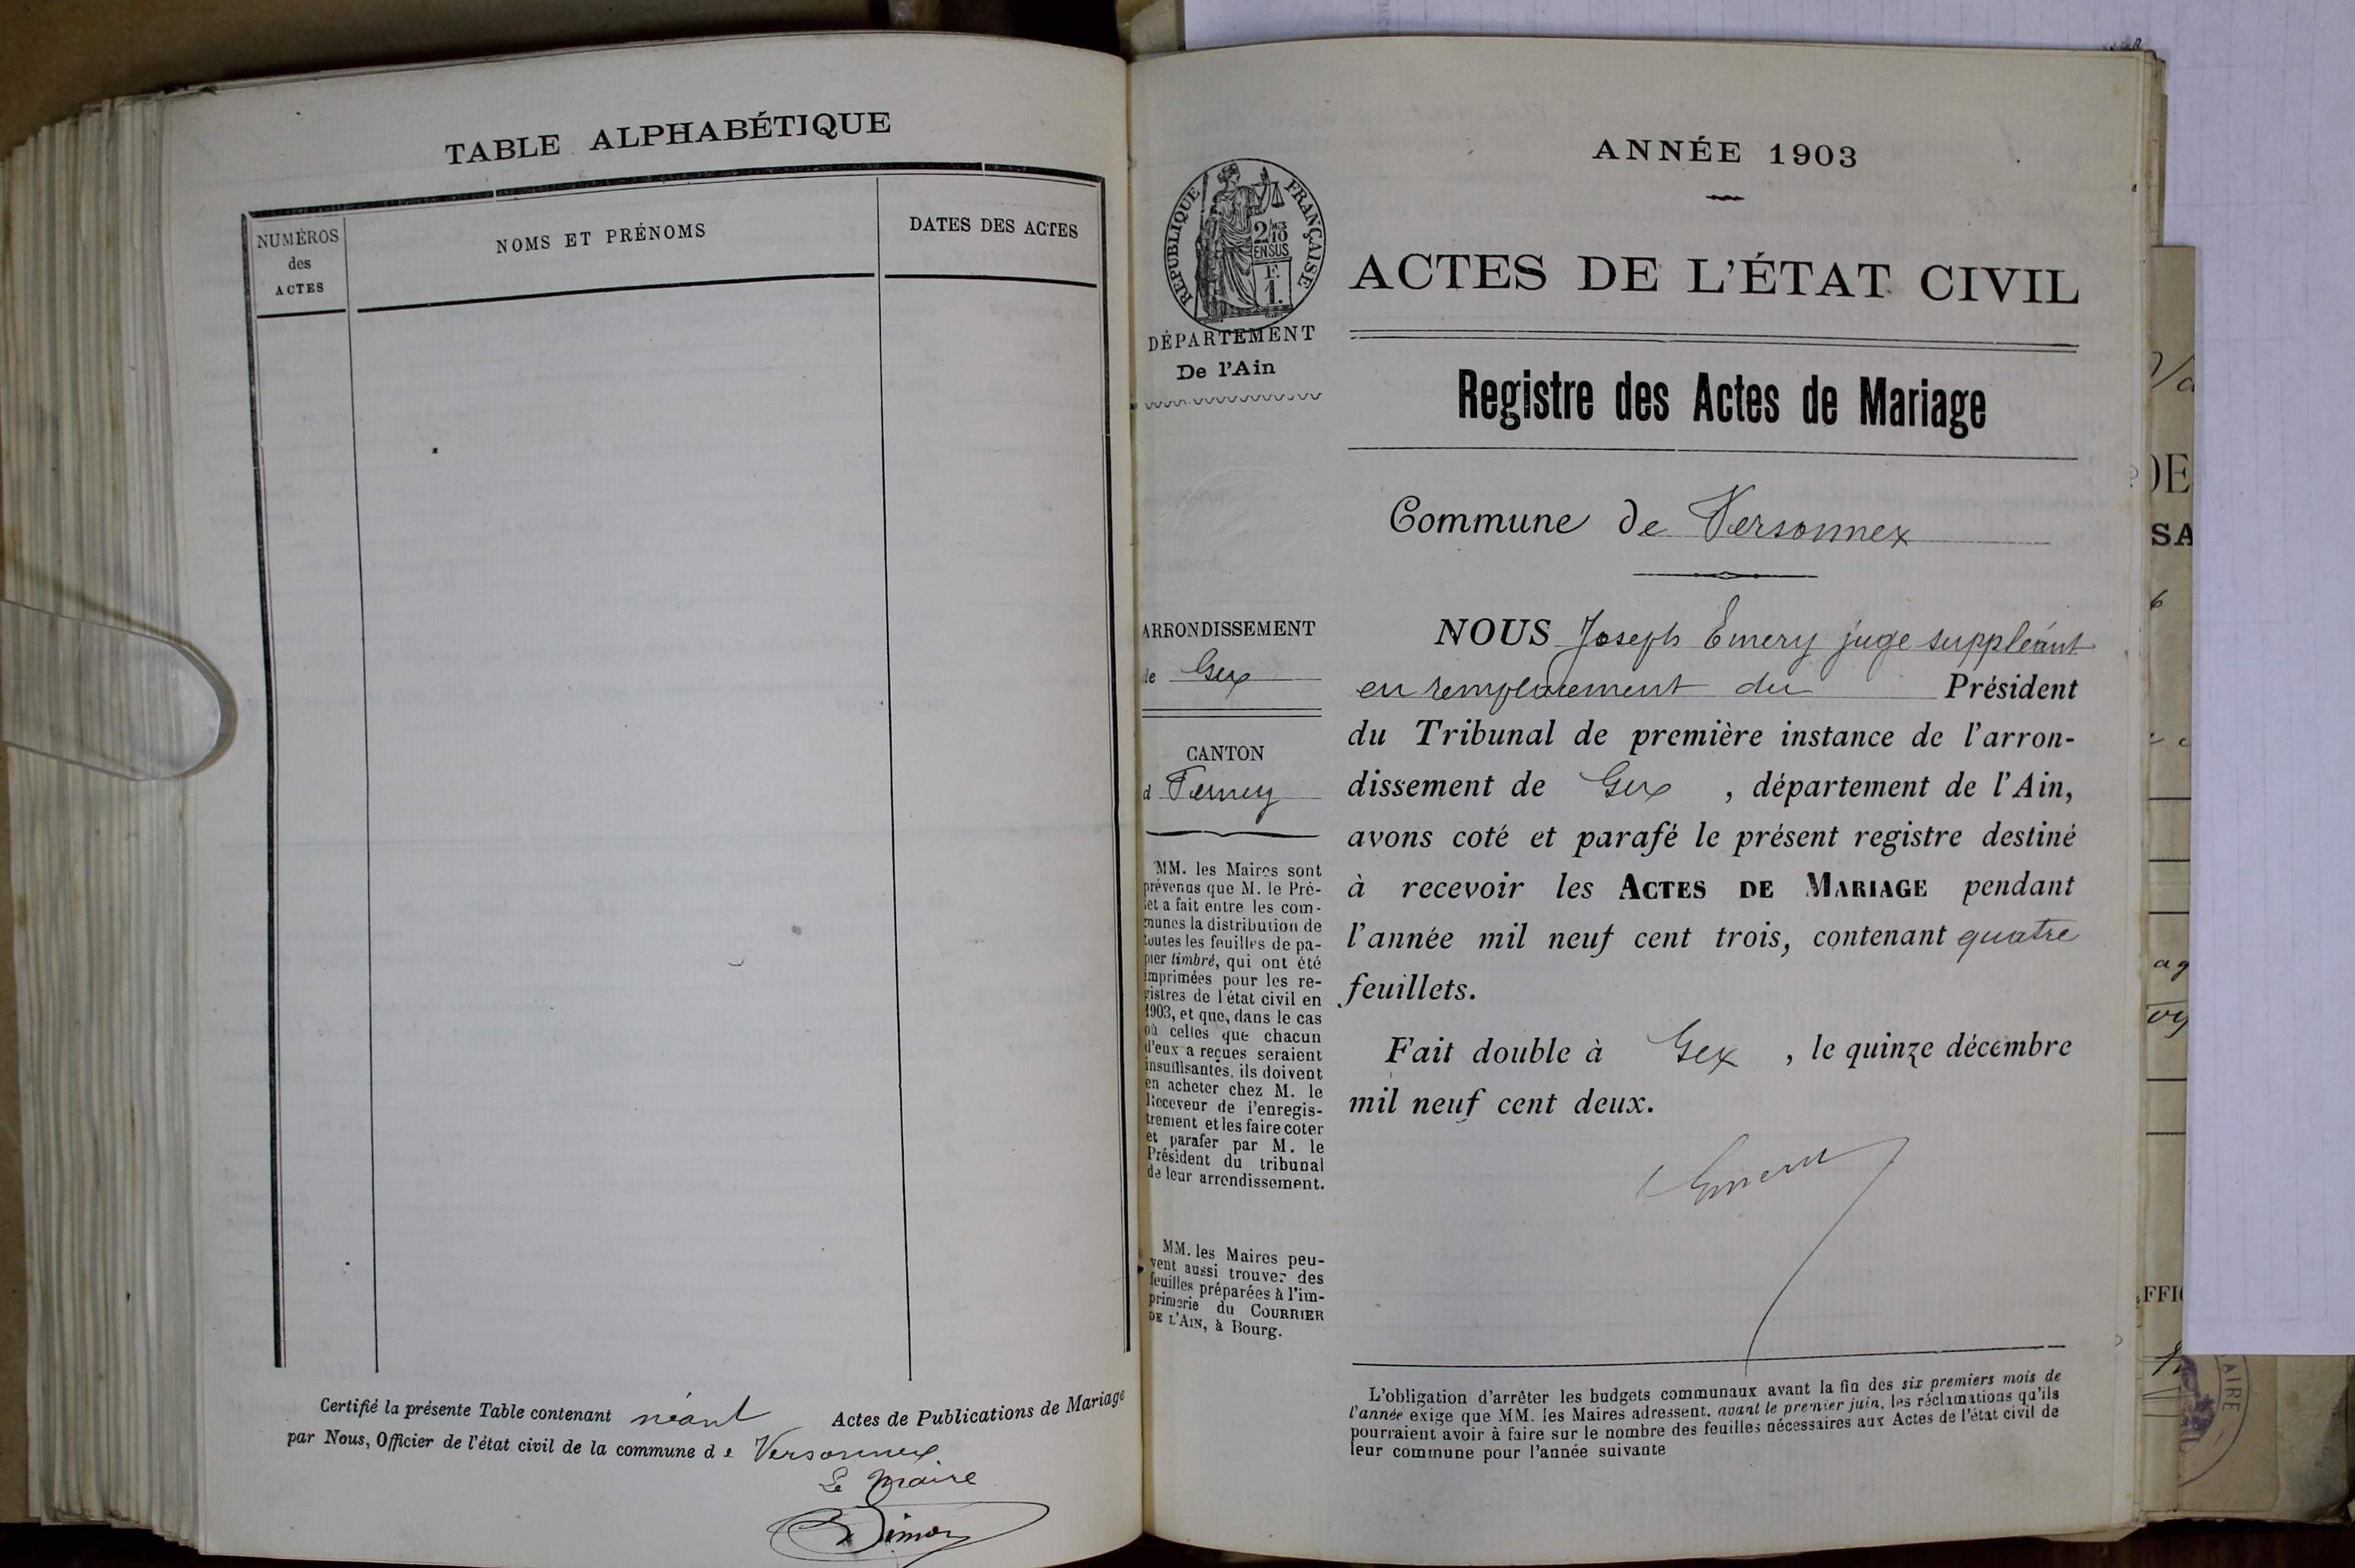 TABLE ALPHABÉTIQUE
NUMÉROS
des
ACTES
NOMS ET PRÉNOMS
DATES DES ACTES
Certifié la présente Table contenant néant Actes de Publications de Mariage
par Nous, Officier de l'état civil de la commune de Versonnex
Le Maire
ANNÉE 1903
RÉPUBLIQUE FRANÇAISE
2/10
EN SUS
F.
1.
DÉPARTEMENT
De l'Ain
ARRONDISSEMENT
de Gex
CANTON
d Ferney
MM. les Maires sont
prévenus que M. le Pré-
fet a fait entre les com-
munes la distribution de
toutes les feuilles de pa-
pier timbré, qui ont été
imprimées pour les re-
gistres de l'état civil en
1903, et que, dans le cas
où celles que chacun
d'eux a reçues seraient
insuffisantes, ils doivent
en acheter chez M. le
Receveur de l'enregis-
trement et les faire coter
et parafer par M. le
Président du tribunal
de leur arrondissement.
MM. les Maires peu-
vent aussi trouver des
feuilles préparées à l'im-
primerie du COURRIER
DE L'AIN, à Bourg.
ACTES DE L'ÉTAT CIVIL
Registre des Actes de Mariage
Commune de Versonnex
NOUS Joseph Emery juge suppléant
en remplacement du Président
du Tribunal de première instance de l'arron-
dissement de Gex , département de l'Ain,
avons coté et parafé le présent registre destiné
à recevoir les ACTES DE MARIAGE pendant
l'année mil neuf cent trois, contenant quatre
feuillets.
Fait double à Gex , le quinze décembre
mil neuf cent deux.
Emery
L'obligation d'arrêter les budgets communaux avant la fin des six premiers mois de
l'année exige que MM. les Maires adressent, avant le premier juin, les réclamations qu'ils
pourraient avoir à faire sur le nombre des feuilles nécessaires aux Actes de l'état civil de
leur commune pour l'année suivante